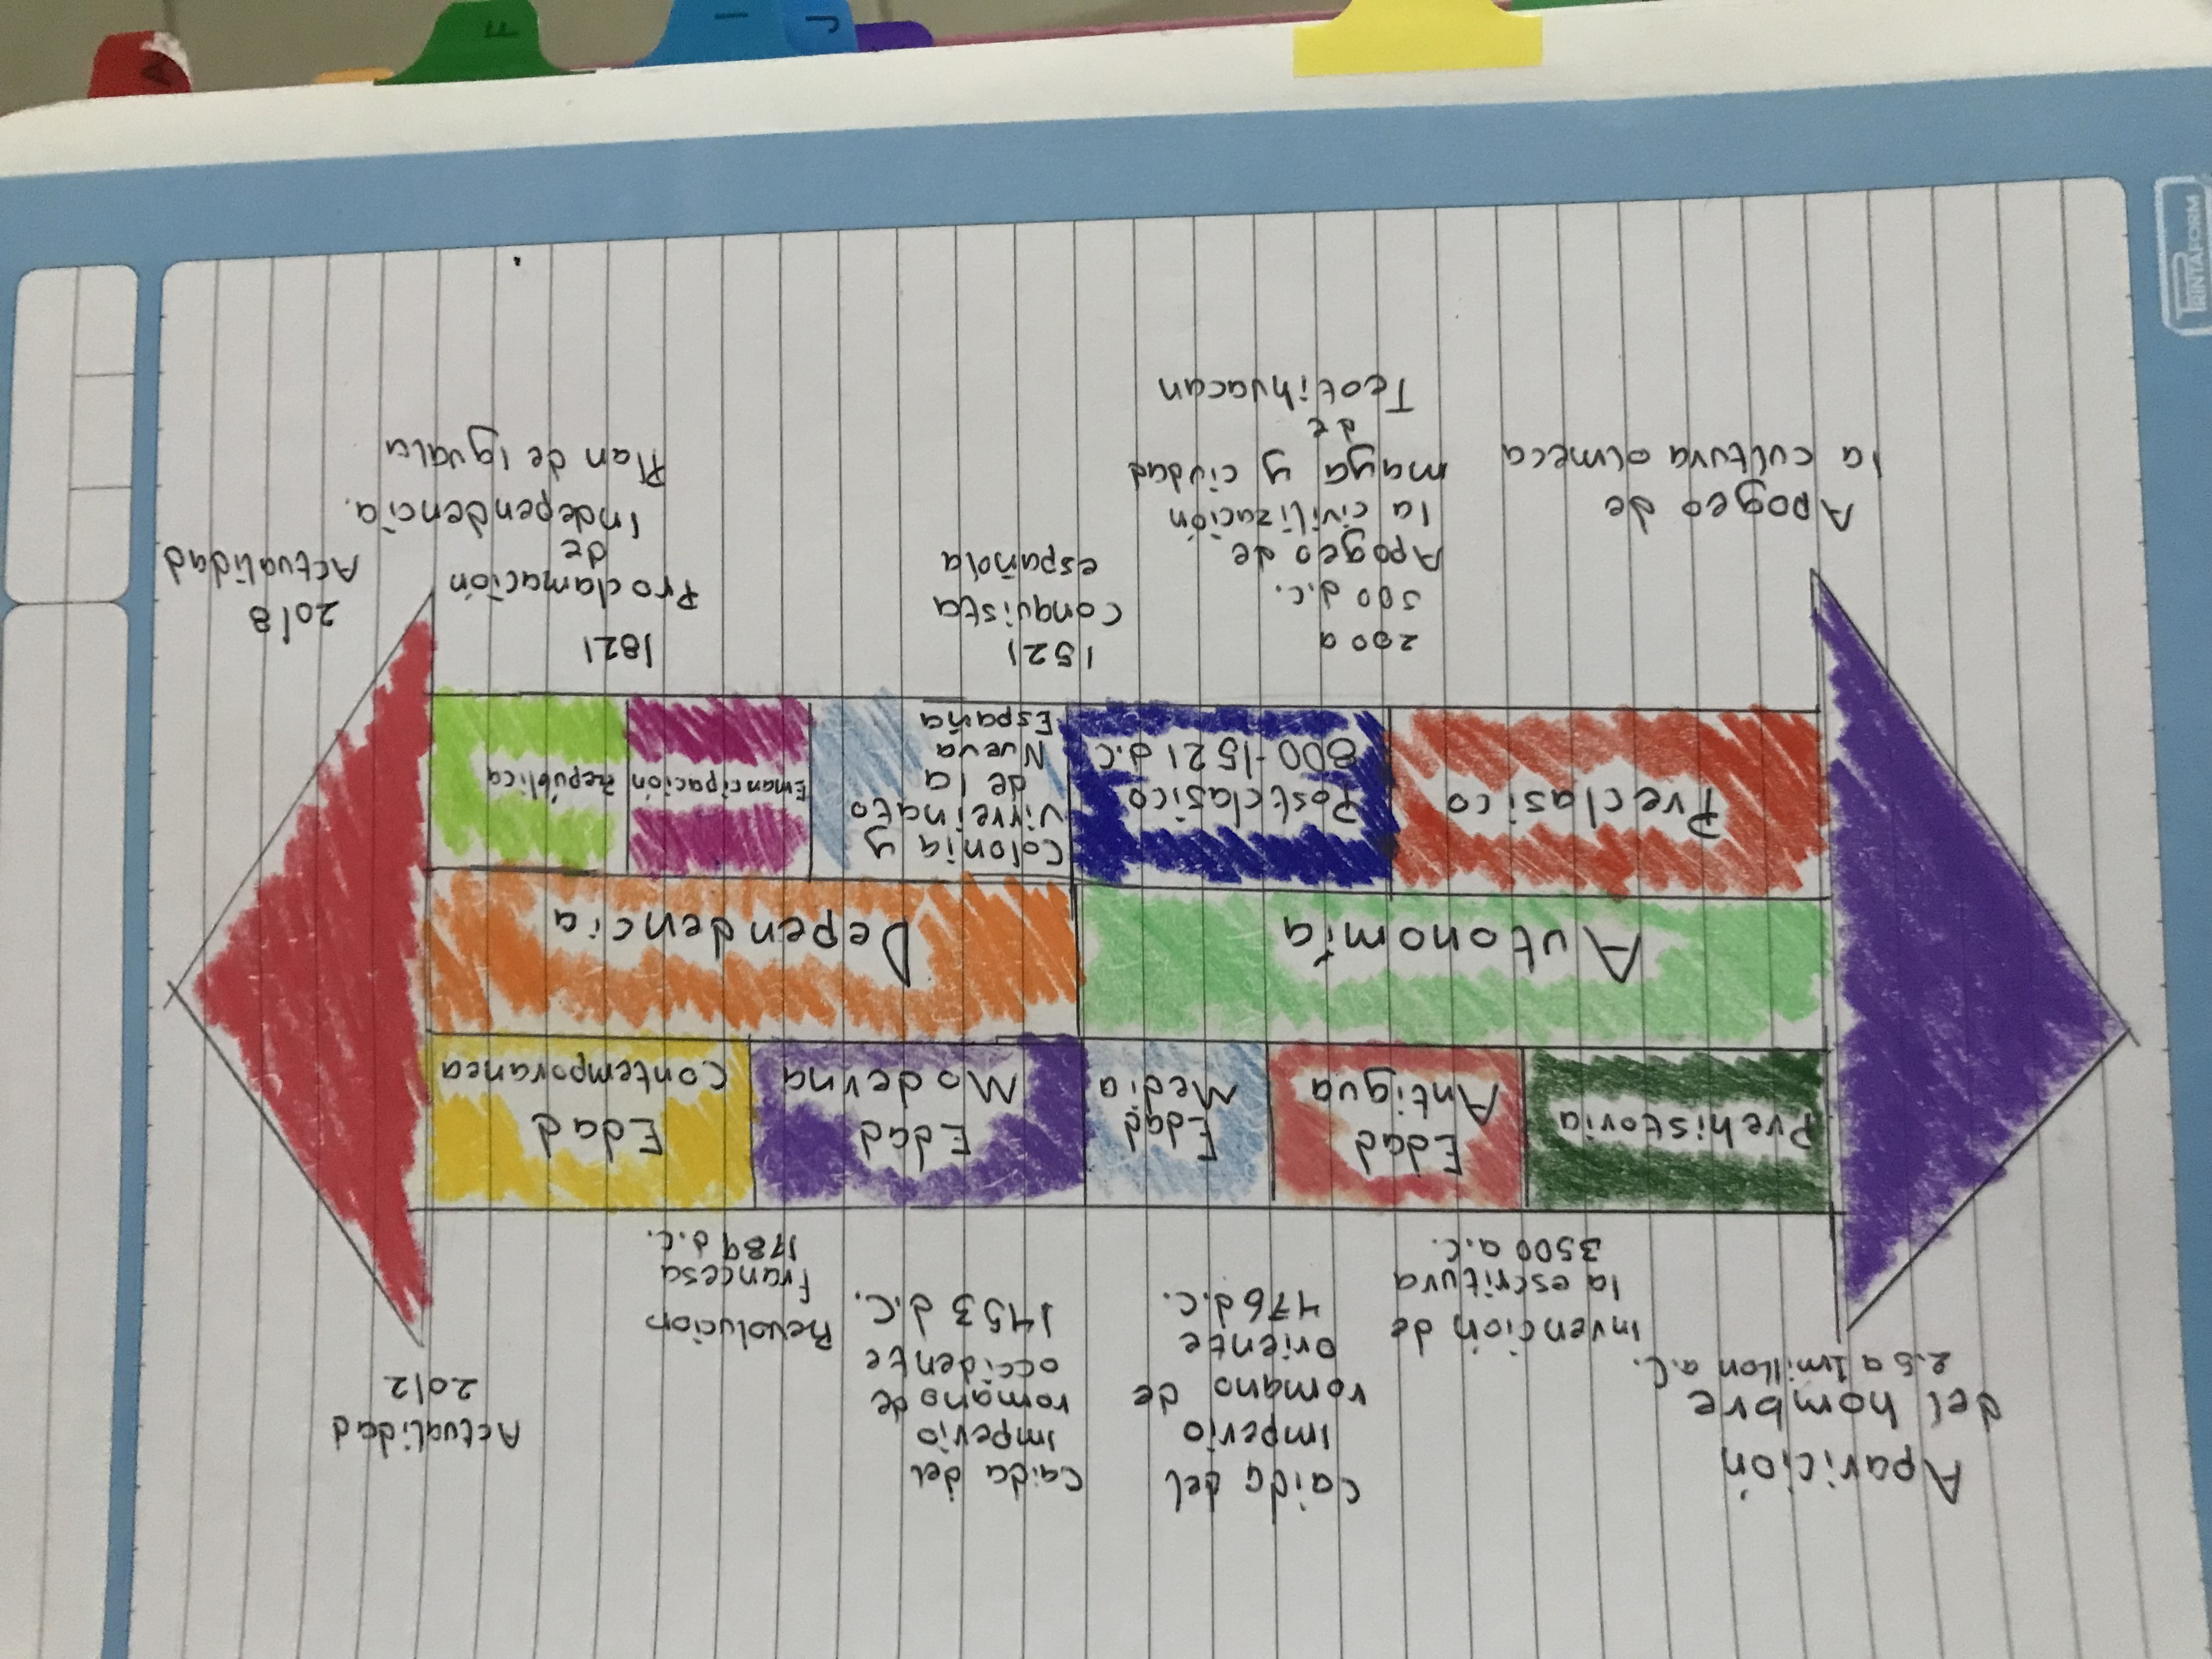 Aparición
del hombre
2.5 a 1millon a.C.
invención de
la escritura
3500 a.c.
Caida del
imperio
romano de
oriente
476 d.C.
Caida del
imperio
romano de
occidente
1453 d.C.
Revolucion
francesa
1789 d.C.
Actualidad
2012
Prehistoria
Edad
Antigua
Edad
Media
Edad
Moderna
Edad
Contemporanea
Autonomía
Dependencia
Preclasico
Postclasico
800-1521 d.C
Colonia y
Virreinato
de la
Nueva
España
Emancipación
República
Apogeo de
la cultura olmeca
200 a
500 d.c.
Apogeo de
la civilización
maya y ciudad
de
Teotihuacan
1521
Conquista
española
1821
Proclamación
de
Independencia.
Plan de Iguala
2018
Actualidad
PRINTAFORM
A
F
I
J